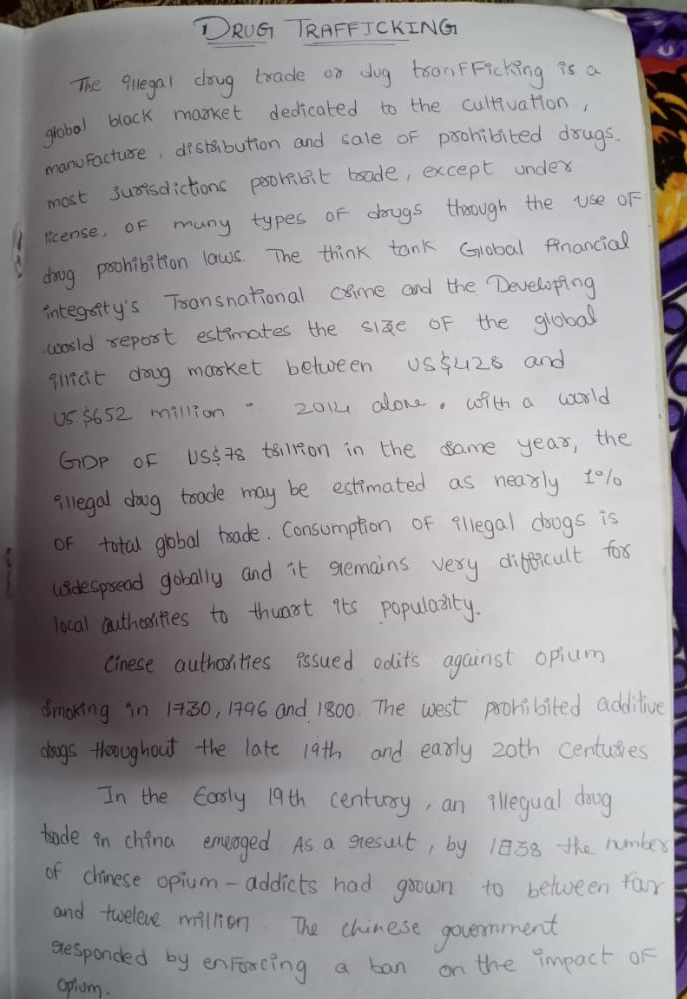 DRUG TRAFFICKING
The illegal drug trade or dug tranFFicking is a
global black market dedicated to the cultivation,
manufacture, distribution and sale of prohibited drugs.
most Jurisdictions prohibit trade, except under
license, of many types of drugs through the use of
drug prohibition laws. The think tank Global Financial
integrity's Transnational crime and the Developing
world report estimates the size of the global
illicit drug market between US$426 and
US $652 million 2014 alone. with a world
GDP OF US$78 trillion in the same year, the
illegal drug trade may be estimated as nearly 1%
of total global trade. Consumption of illegal drugs is
widespread gobally and it remains very difficult for
local authorities to thwart its popularity.
Cinese authorities issued edits against opium
smoking in 1730, 1796 and 1800. The west prohibited additive
drugs throughout the late 19th and early 20th centuries
In the Early 19th century, an illegual drug
trade in china emerged As a result, by 1838 the number
of chinese opium - addicts had grown to between four
and tweleve million The chinese government
responded by enforcing a ban on the impact of
opium.